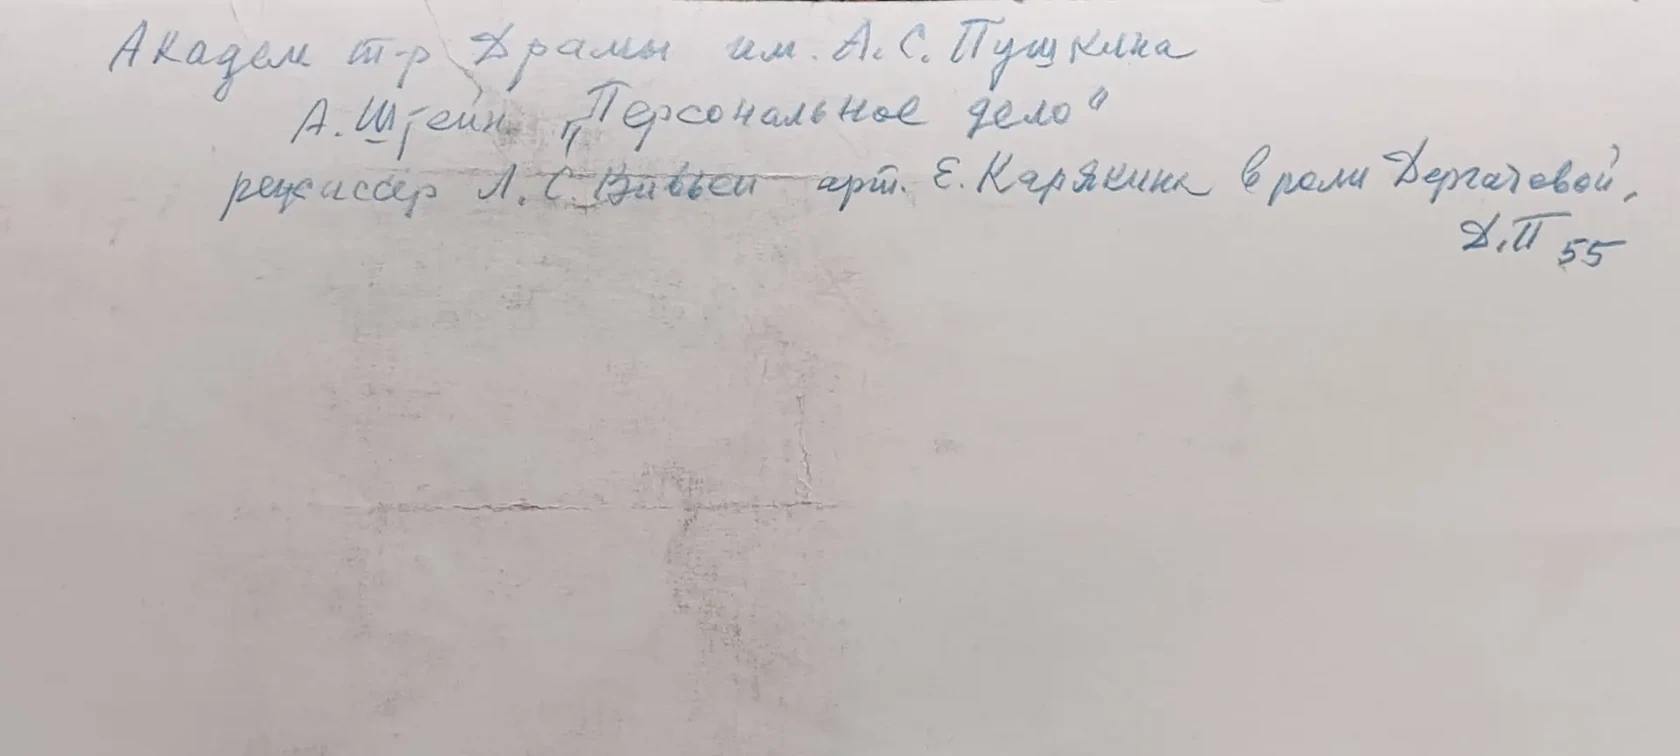 Академ т-р Драмы им. А.С. Пушкина
А. Штейн „Персональное дело“
режиссёр Л.С. Вивьен арт. Е. Карякина в роли Дергачевой,
Д.П 55